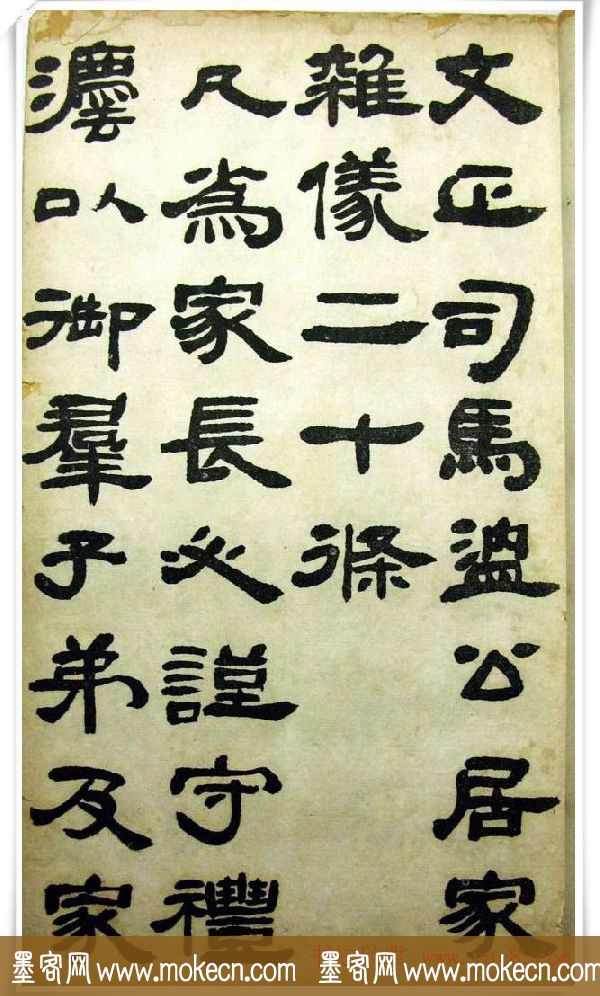 文正司馬溫公居家
雜儀二十條
凡爲家長必謹守禮
灋以御羣子弟及家
墨客网 www.mokecn.com 墨客网 www.mokecn.com